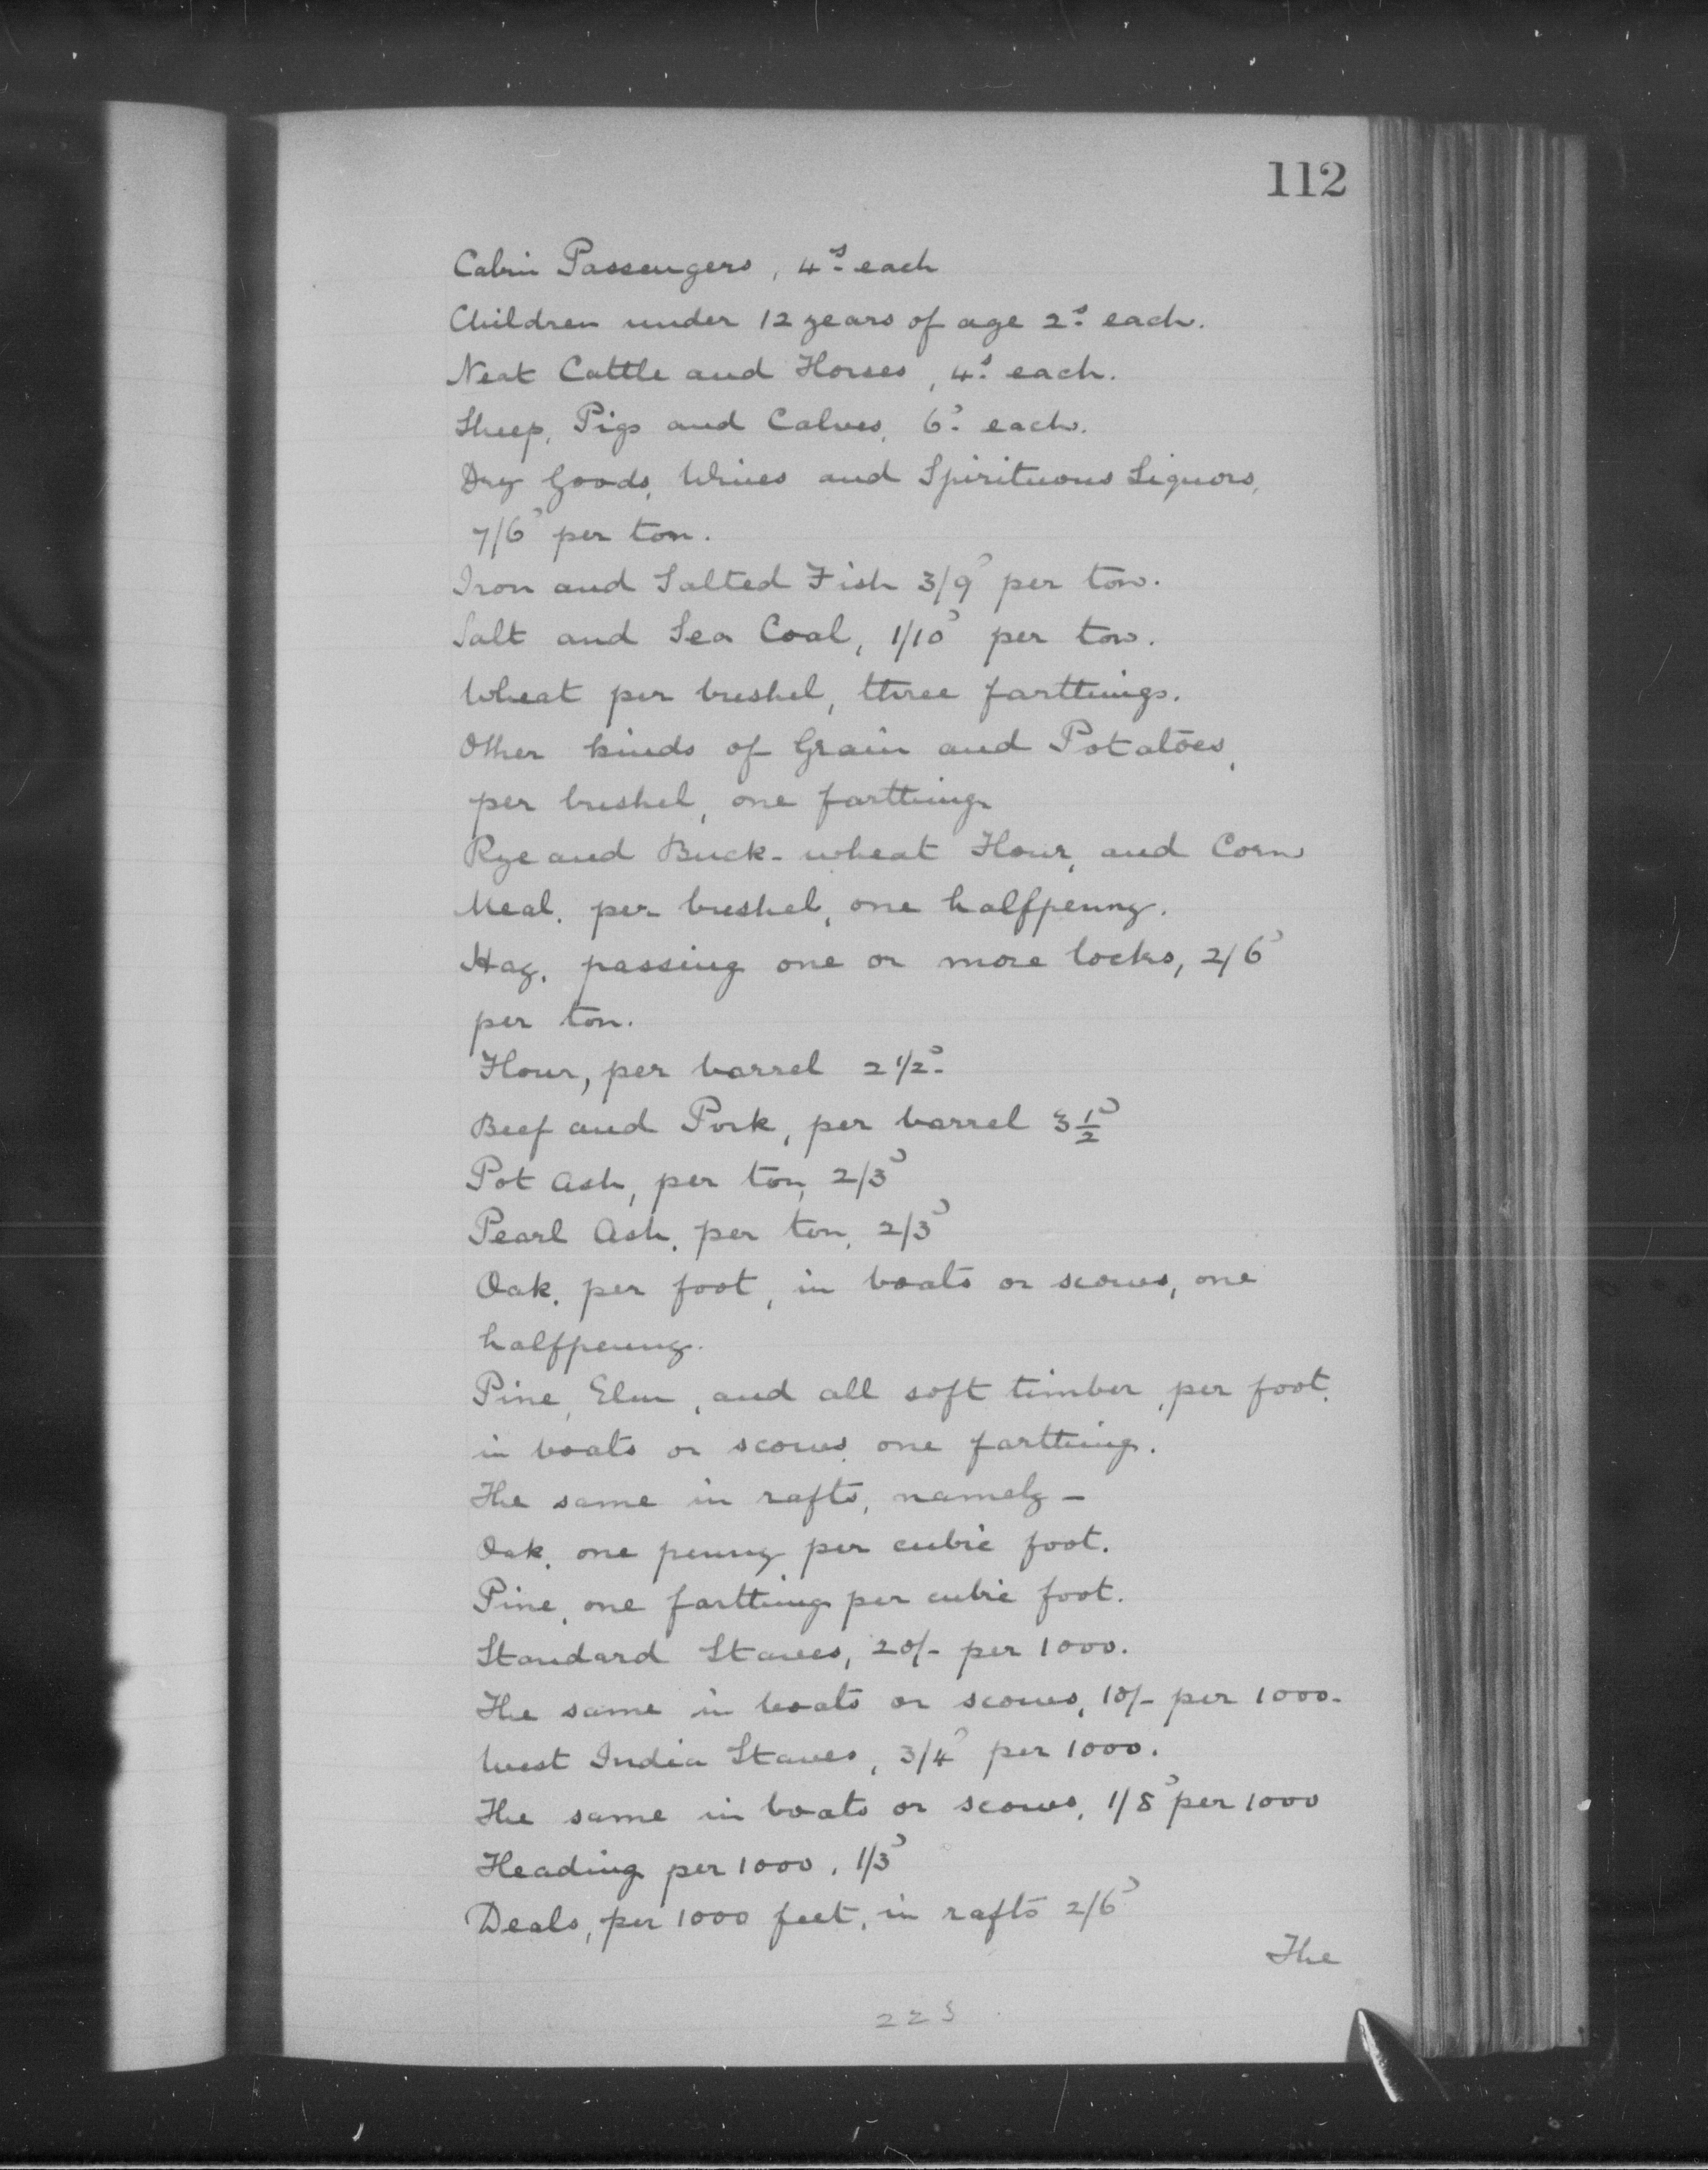 112
Cabin Passengers, 4s. each
Children under 12 years of age 2s. each.
Neat Cattle and Horses, 4s. each.
Sheep, Pigs and Calves, 6d. each.
Dry Goods, Wines and Spirituous Liquors,
7/6d per ton.
Iron and Salted Fish 3/9d per ton.
Salt and Sea Coal, 1/10d per ton.
Wheat per bushel, three farthings.
Other kinds of Grain and Potatoes,
per bushel, one farthing
Rye and Buck-wheat Flour, and Corn
Meal, per bushel, one halfpenny.
Hay, passing one or more locks, 2/6d
per ton.
Flour, per barrel 2 1/2d.
Beef and Pork, per barrel 3 1/2d
Pot Ash, per ton, 2/3d
Pearl Ash, per ton, 2/3d
Oak, per foot, in boats or scows, one
halfpenny.
Pine, Elm, and all soft timber, per foot,
in boats or scows, one farthing.
The same in rafts, namely -
Oak, one penny per cubic foot.
Pine, one farthing per cubic foot.
Standard Staves, 20/- per 1000.
The same in boats or scows, 10/- per 1000.
West India Staves, 3/4d per 1000.
The same in boats or scows, 1/8d per 1000
Heading per 1000, 1/3d
Deals, per 1000 feet, in rafts 2/6d
The